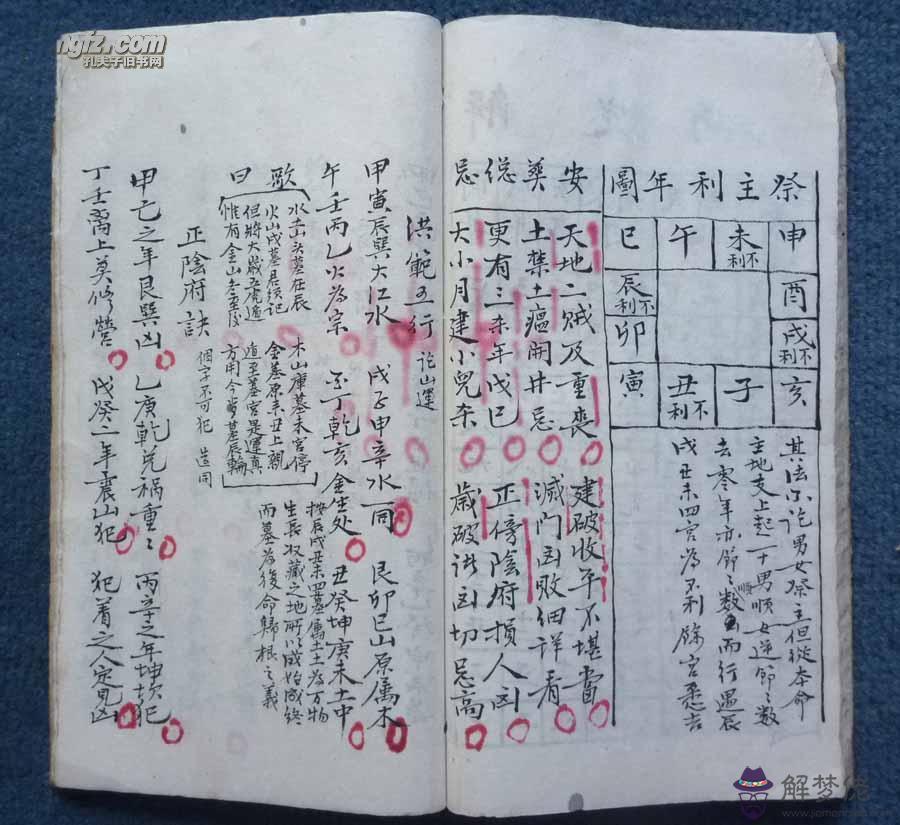 祭主利年圖
申 未不利 午 巳
酉 辰不利
戌不利 卯
亥 子 丑不利 寅
其法不論男女祭主但從本命
主地支上起一十男順女逆節々數
去零年亦節々順數而行遇辰
戌丑未四宮為不利餘宮悉吉
安葬总忌
天地二賊及重喪 建破收平不堪當
土禁土瘟開井忌 滅门凶败细详看
更有三杀年戊巳 正傍陰府損人凶
大小月建小兒杀 歲破諸凶切忌高
洪範五行 论山運
甲寅辰巽大江水 戌子申辛水一同 艮卯巳山原属木
午壬丙乙火為宗 酉丁乾亥金生处 丑癸坤庚未土中
歌曰
水土山头墓在辰 木山庫墓未宮停
火山戌墓君须记 金墓原来丑上親
但將大歲五虎遁 遁至墓宮是運真
惟有金山冬至後 方用今當墓辰輪
按辰戌丑未四墓属土土為万物
生長收藏之地所以成始成終
而墓為後命歸根之義
正陰府訣 個字不可犯 造同
甲己之年艮巽凶 乙庚乾兑祸重々 丙辛之年坤坎犯
丁壬离上莫修營 戊癸二年震山犯 犯着之人定見凶
ngfz.com
孔夫子旧书网
解梦佬
www.jiemeng